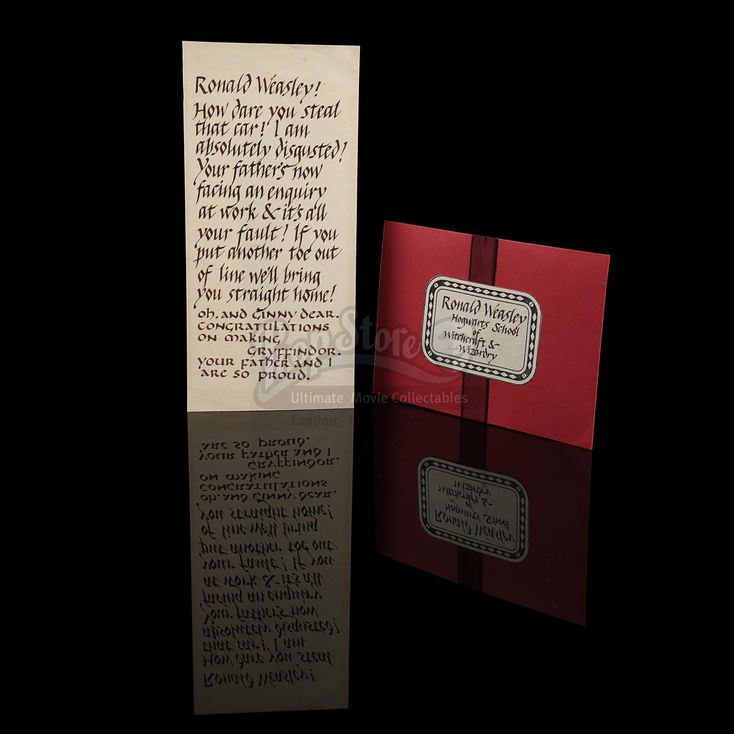 Ronald Weasley!
How dare you steal
that car! I am
absolutely disgusted!
Your father's now
facing an enquiry
at work & it's all
your fault! If you
put another toe out
of line we'll bring
you straight home!
oh, and Ginny dear.
congratulations
on making
Gryffindor.
your father and I
are so proud.
Ronald Weasley
Hogwarts School
of
Witchcraft &
Wizardry
PropStore
Ultimate Movie Collectables
London